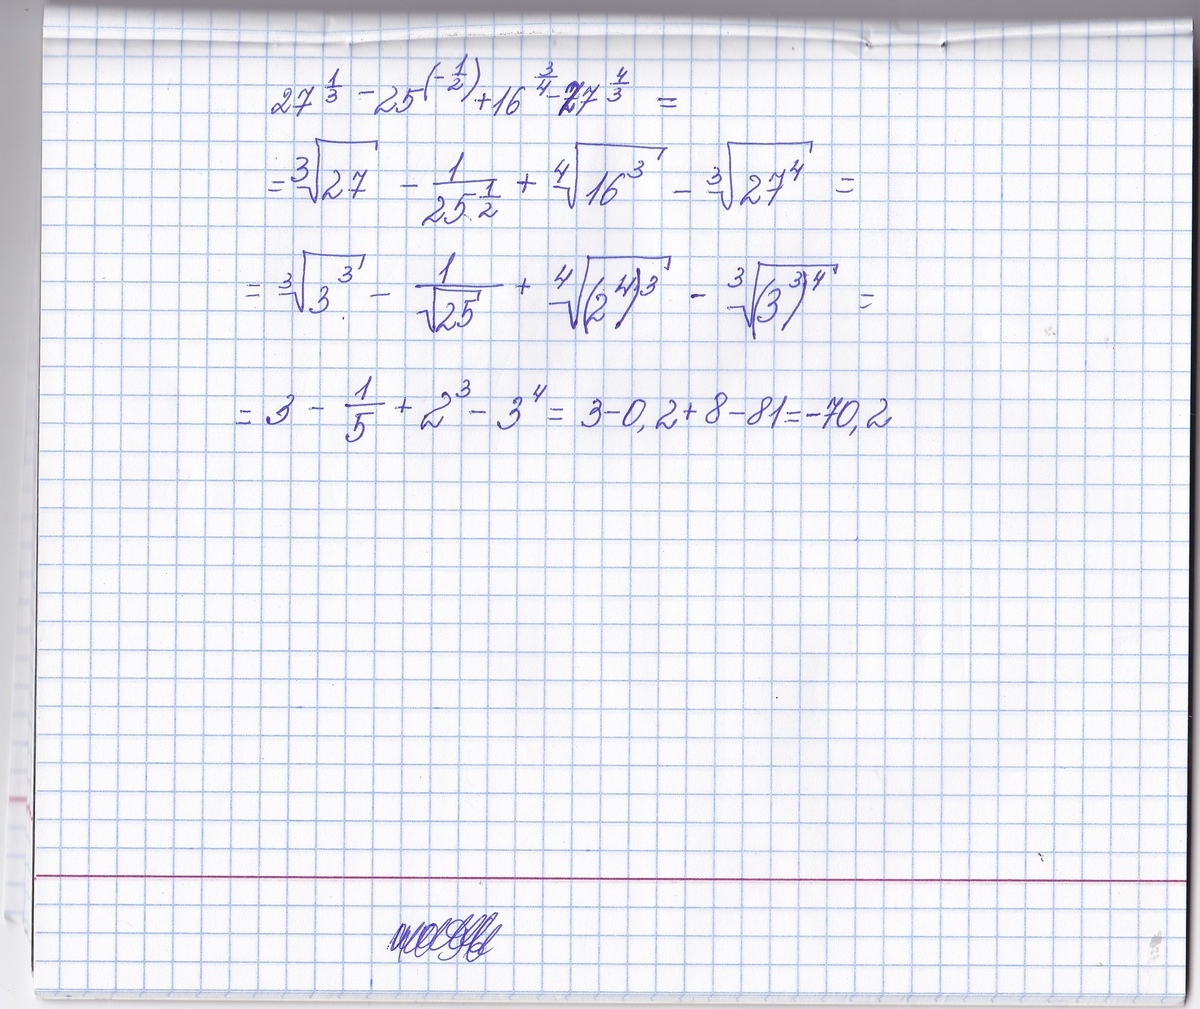 27^(1/3) - 25^(-1/2) + 16^(3/4) - 27^(4/3) =
= ∛27 - 1/25^(1/2) + ∜16³ - ∛27⁴ =
= ∛3³ - 1/√25 + ∜(2⁴)³ - ∛(3³)⁴ =
= 3 - 1/5 + 2³ - 3⁴ = 3 - 0,2 + 8 - 81 = -70,2